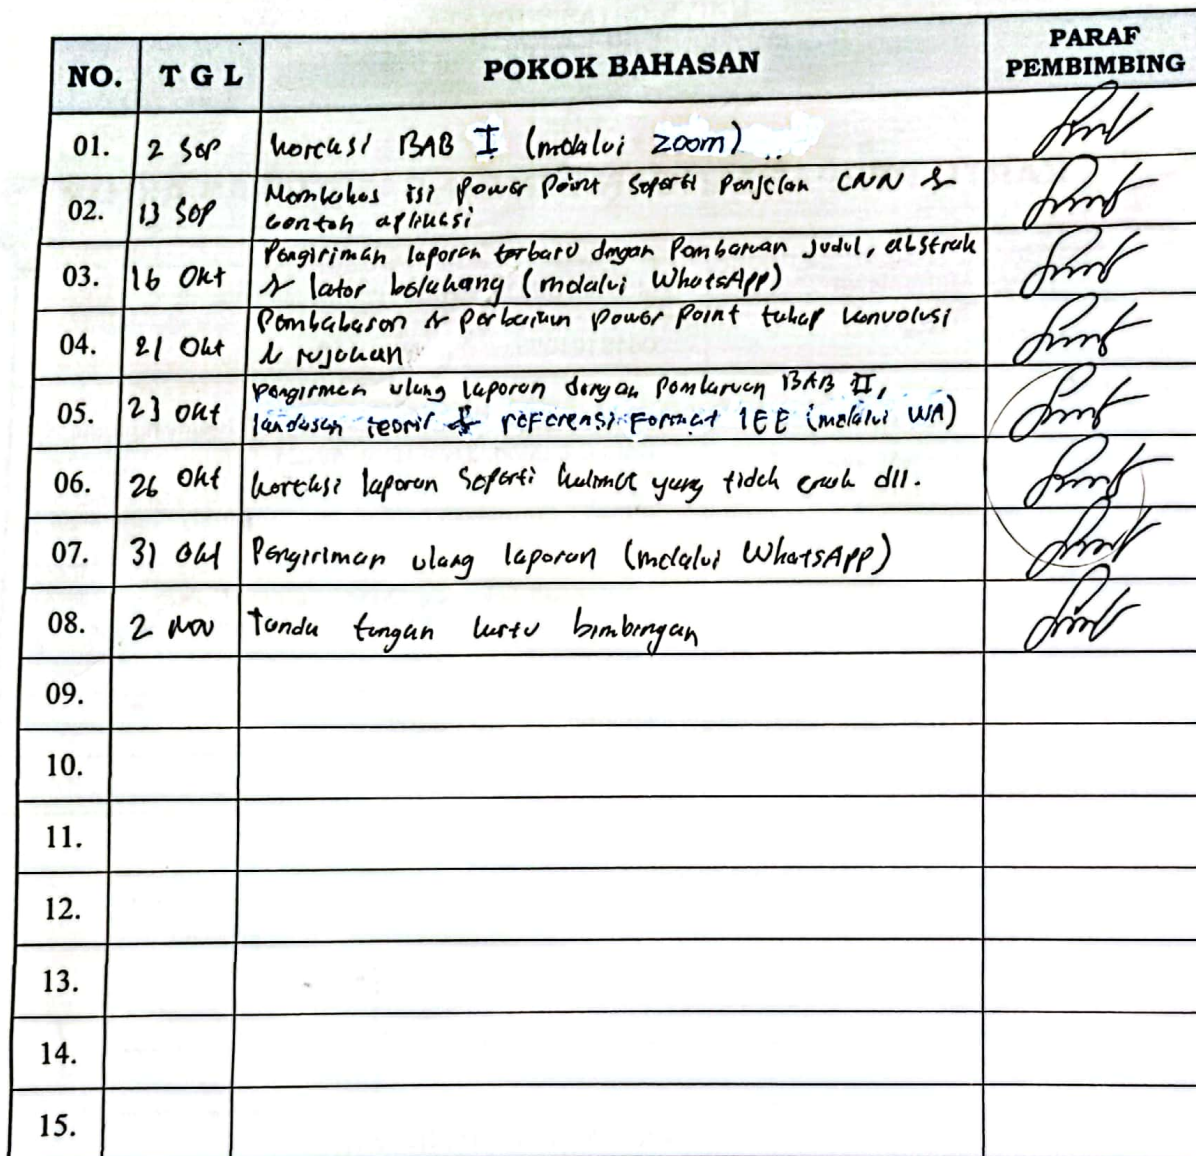 NO. T G L POKOK BAHASAN PARAF PEMBIMBING
01. 2 Sep koreksi BAB I (melalui zoom)
02. 13 Sep Membahas isi Power Point Seperti Penjelan CNN &
contoh aplikasi
03. 16 Okt Pengiriman laporan terbaru dengan Pembaruan Judul, abstrak
& latar belakang (melalui WhatsApp)
04. 21 Okt Pembahasan & Perbaikan power point tahap konvolusi
& rujukan
05. 23 Okt pengirman ulang laporan dengan Pembaruan BAB II,
landasan teori & referensi format IEE (melalui WA)
06. 26 Okt koreksi laporan Seperti kalimat yang tidak enak dll.
07. 31 Okt Pengiriman ulang laporan (melalui WhatsApp)
08. 2 Nov tanda tangan kartu bimbingan
09.
10.
11.
12.
13.
14.
15.